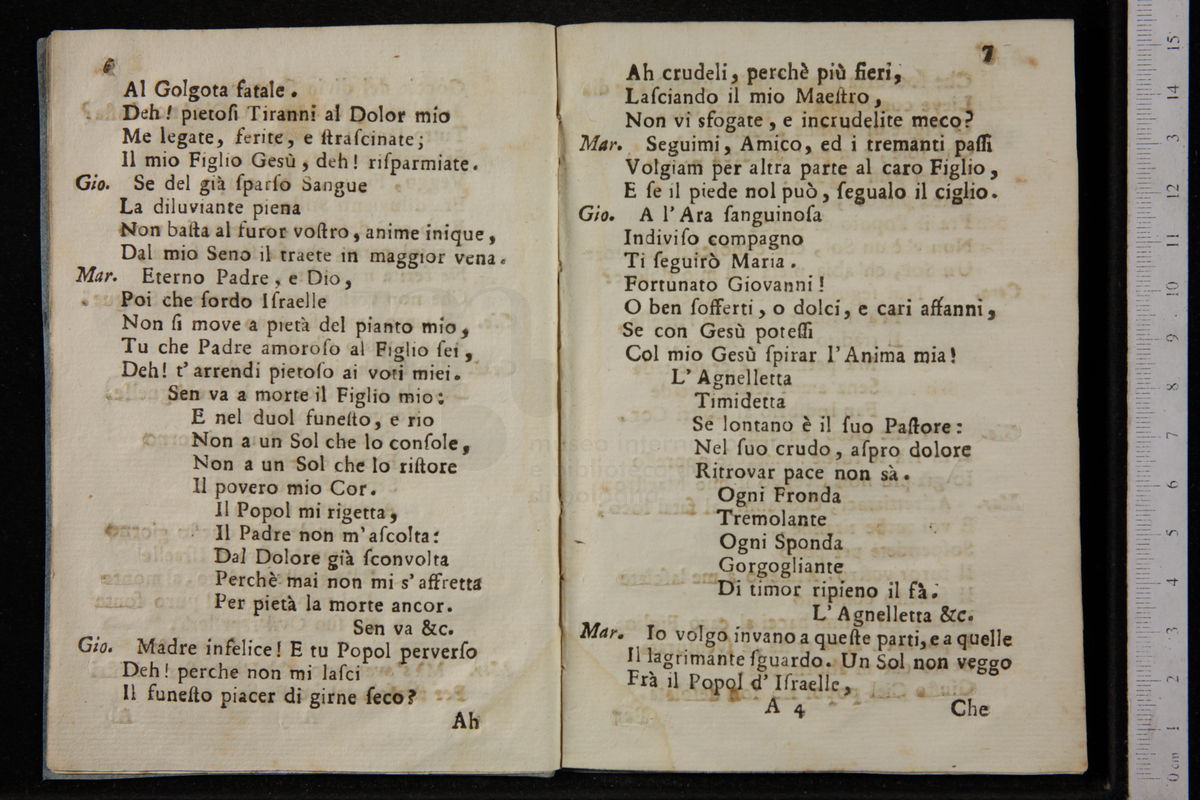 6
Al Golgota fatale.
Deh! pietoſi Tiranni al Dolor mio
Me legate, ferite, e ſtraſcinate;
Il mio Figlio Gesù, deh! riſparmiate.
Gio. Se del già ſparſo Sangue
La diluviante piena
Non baſta al furor voſtro, anime inique,
Dal mio Seno il traete in maggior vena.
Mar. Eterno Padre, e Dio,
Poi che ſordo Iſraelle
Non ſi move a pietà del pianto mio,
Tu che Padre amoroſo al Figlio ſei,
Deh! t'arrendi pietoſo ai voti miei.
Sen va a morte il Figlio mio:
E nel duol funeſto, e rio
Non a un Sol che lo conſole,
Non a un Sol che lo riſtore
Il povero mio Cor.
Il Popol mi rigetta,
Il Padre non m'aſcolta:
Dal Dolore già ſconvolta
Perchè mai non mi s'affretta
Per pietà la morte ancor.
Sen va &c.
Gio. Madre infelice! E tu Popol perverſo
Deh! perche non mi laſci
Il funeſto piacer di girne ſeco?
Ah
7
Ah crudeli, perchè più fieri,
Laſciando il mio Maeſtro,
Non vi sfogate, e incrudelite meco?
Mar. Seguimi, Amico, ed i tremanti paſſi
Volgiam per altra parte al caro Figlio,
E ſe il piede nol può, ſegualo il ciglio.
Gio. A l'Ara ſanguinoſa
Indiviſo compagno
Ti ſeguirò Maria.
Fortunato Giovanni!
O ben ſofferti, o dolci, e cari affanni,
Se con Gesù poteſſi
Col mio Gesù ſpirar l'Anima mia!
L'Agnelletta
Timidetta
Se lontano è il ſuo Paſtore:
Nel ſuo crudo, aſpro dolore
Ritrovar pace non sà.
Ogni Fronda
Tremolante
Ogni Sponda
Gorgogliante
Di timor ripieno il fà.
L'Agnelletta &c.
Mar. Io volgo invano a queſte parti, e a quelle
Il lagrimante ſguardo. Un Sol non veggo
Frà il Popol d'Iſraelle,
A 4
Che